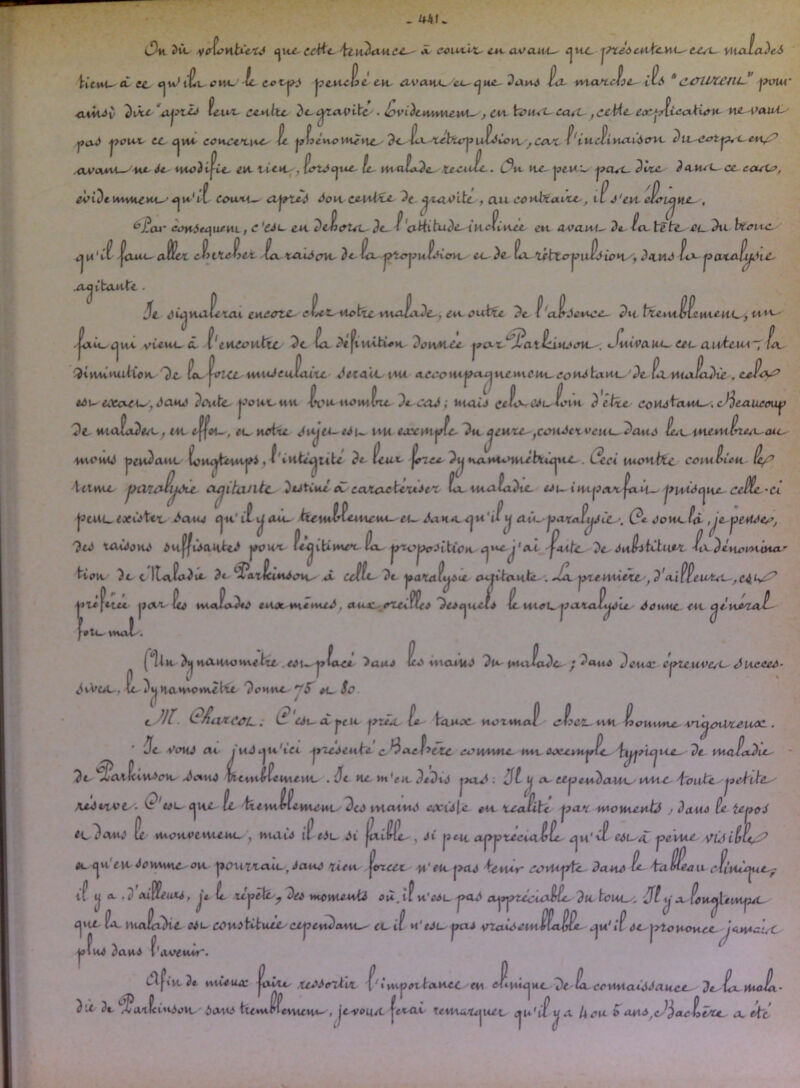 - 441.
On dit volontiers que cette tendance à courir en avant que présentent ces malades
tient à ce qu'ils ont le corps penché en avant et que dans la marche ils "courent" pour
ainsi dire "après leur centre de gravité". Évidemment, en tous cas, cette explication ne vaut
pas pour ce qui concerne le phénomène de la rétropulsion, car l'inclinaison du corps en
avant ne se modifie en rien, lorsque le malade recule. On ne peut pas dire dans ce cas,
évidemment qu'il court après son centre de gravité, au contraire, il s'en éloigne,
Par conséquent, c'est en dehors de l'attitude inclinée en avant de la tête et du tronc
qu'il faut aller chercher la raison de la propulsion et de la rétropulsion, dans la paralysie
agitante.
Je signalerai encore chez notre malade, en outre de l'absence du tremblement, un
fait qui vient à l'encontre de la définition donnée par Parkinson. Suivant cet auteur, la
diminution de la force musculaire serait un accompagnement constant de la maladie, cela
est exact, sans doute pour un bon nombre de cas; mais cela est loin d'être constant. Beaucoup
de malades, en effet, et notre sujet est un exemple du genre, conservent dans les membres au
moins pendant longtemps, l'intégrité de leur force dynamométrique. Ceci montre combien le
terme paralysie agitante destiné à caractériser la maladie est imparfait puisque celle-ci
peut exister sans qu'il y ait tremblement et sans qu'il y ait paralysie. Ce sont là, je pense,
des raisons suffisantes pour légitimer la proposition que j'ai faite de substituer la dénomina-
tion de Maladie de Parkinson à celle de paralysie agitante. La première, d'ailleurs, est
préférée par les malades eux-mêmes, aux oreilles desquels le mot paralysie sonne en général
fort mal.
(Un dynamomètre est placé dans les mains du malade; dans deux épreuves succes-
sives, le dynamomètre donne 75 et 80
M. Charcot: C'est à peu près le taux normal chez un homme vigoureux.
Je vous ai jusqu'ici présenté Bachère comme un exemple typique de maladie
de Parkinson sans tremblement. Je ne m'en dédis pas: Il y a cependant une toute petite
réserve. C'est que le tremblement des mains existe en réalité par moments, dans le repos
et dans le mouvement, mais il est si faible, si peu appréciable qu'il est à peine visible
et qu'en somme on pourrait, sans rien forcer n'en pas tenir compte dans le tableau clinique,
il y a, d'ailleurs, je le répète, des moments où il n'est pas appréciable du tout. Il y a longtemps
que la maladie est constituée cependant et il n'est pas vraisemblable qu'il se prononce jamais
plus dans l'avenir.
Afin de mieux faire ressortir l'importance en clinique de la connaissance de la mala-
die de Parkinson sans tremblement, je vous ferai remarquer qu'il y a 4 ou 5 ans, Bachère a été